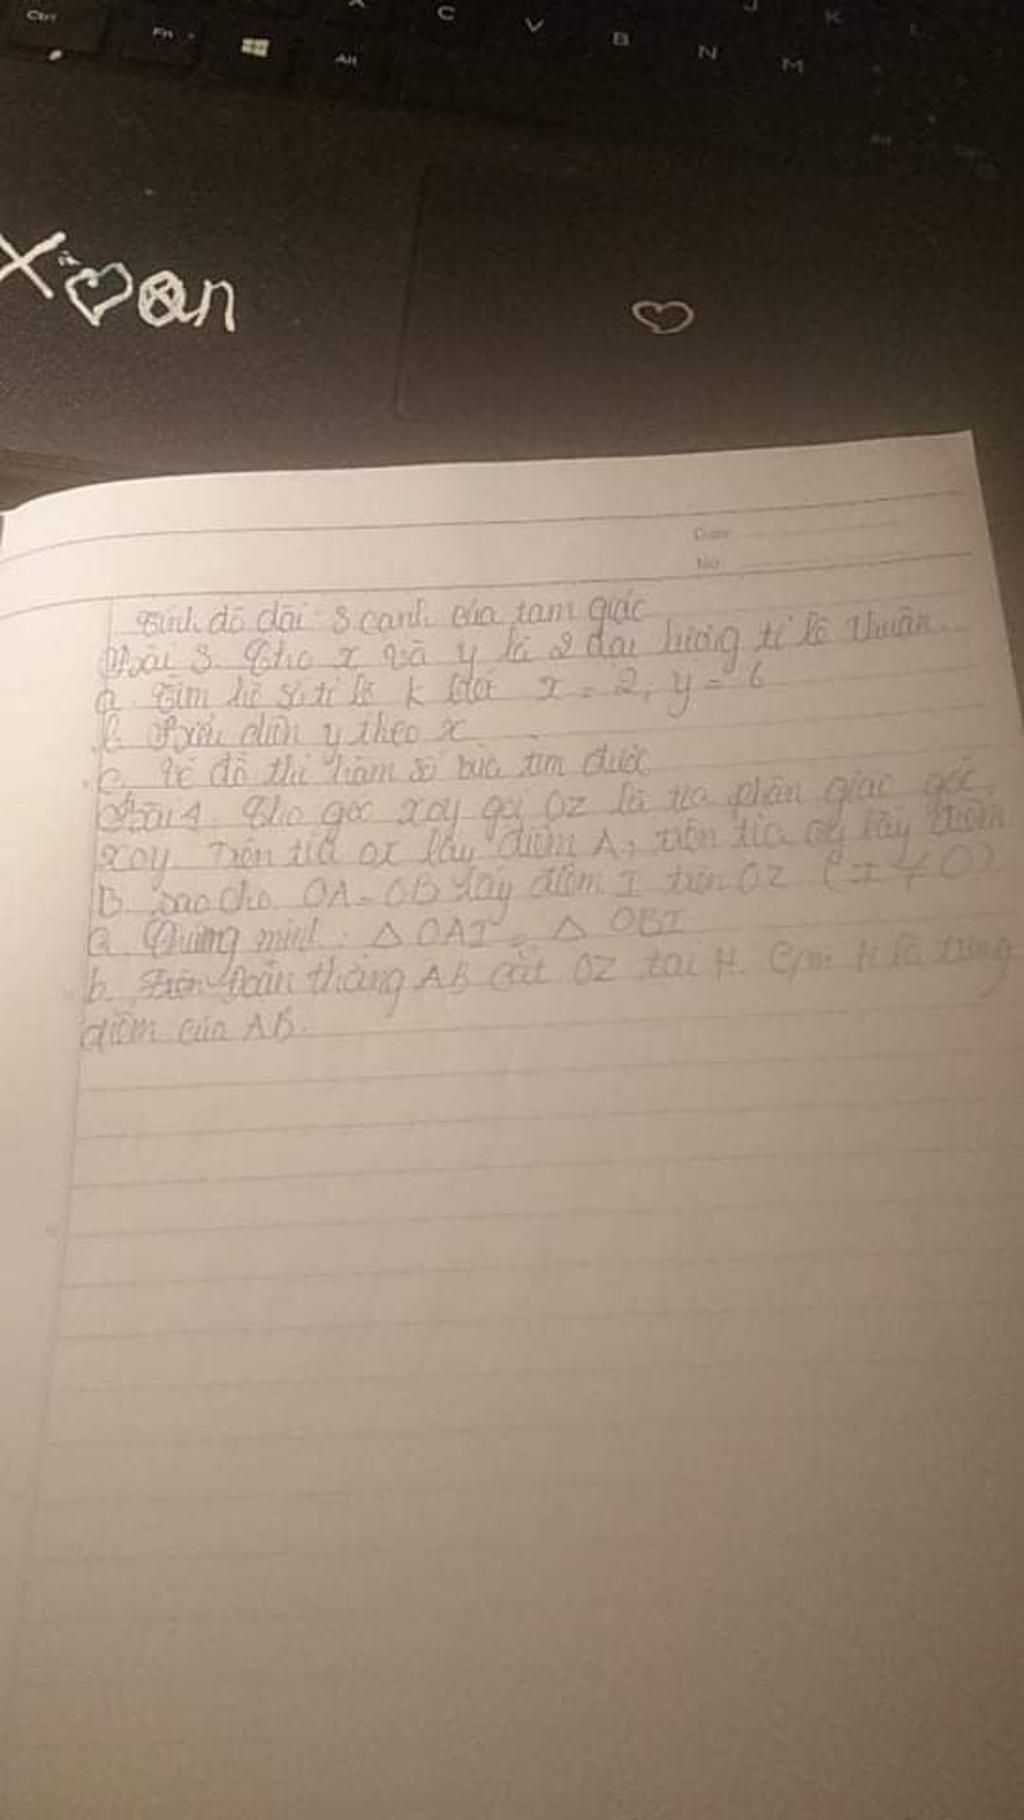 Ctrl Fn Alt X C V B N M J K L
Xoan
Date
No
Tính độ dài 3 cạnh của tam giác
Bài 3. Cho x và y là 2 đại lượng tỉ lệ thuận.
a. Tìm hệ số tỉ lệ k x = 2, y = 6
b. Biểu diễn y theo x
c. Vẽ đồ thị hàm số vừa tìm được
Bài 4. Cho góc xoy gọi Oz là tia phân giác góc
xoy. Trên tia ox lấy điểm A, trên tia oy lấy điểm
B sao cho OA = OB lấy điểm I trên OZ (I ≠ O)
a. Chứng minh: △ OAI = △ OBI
b. Đoạn thẳng AB cắt OZ tại H. C/m H là trung
điểm của AB.